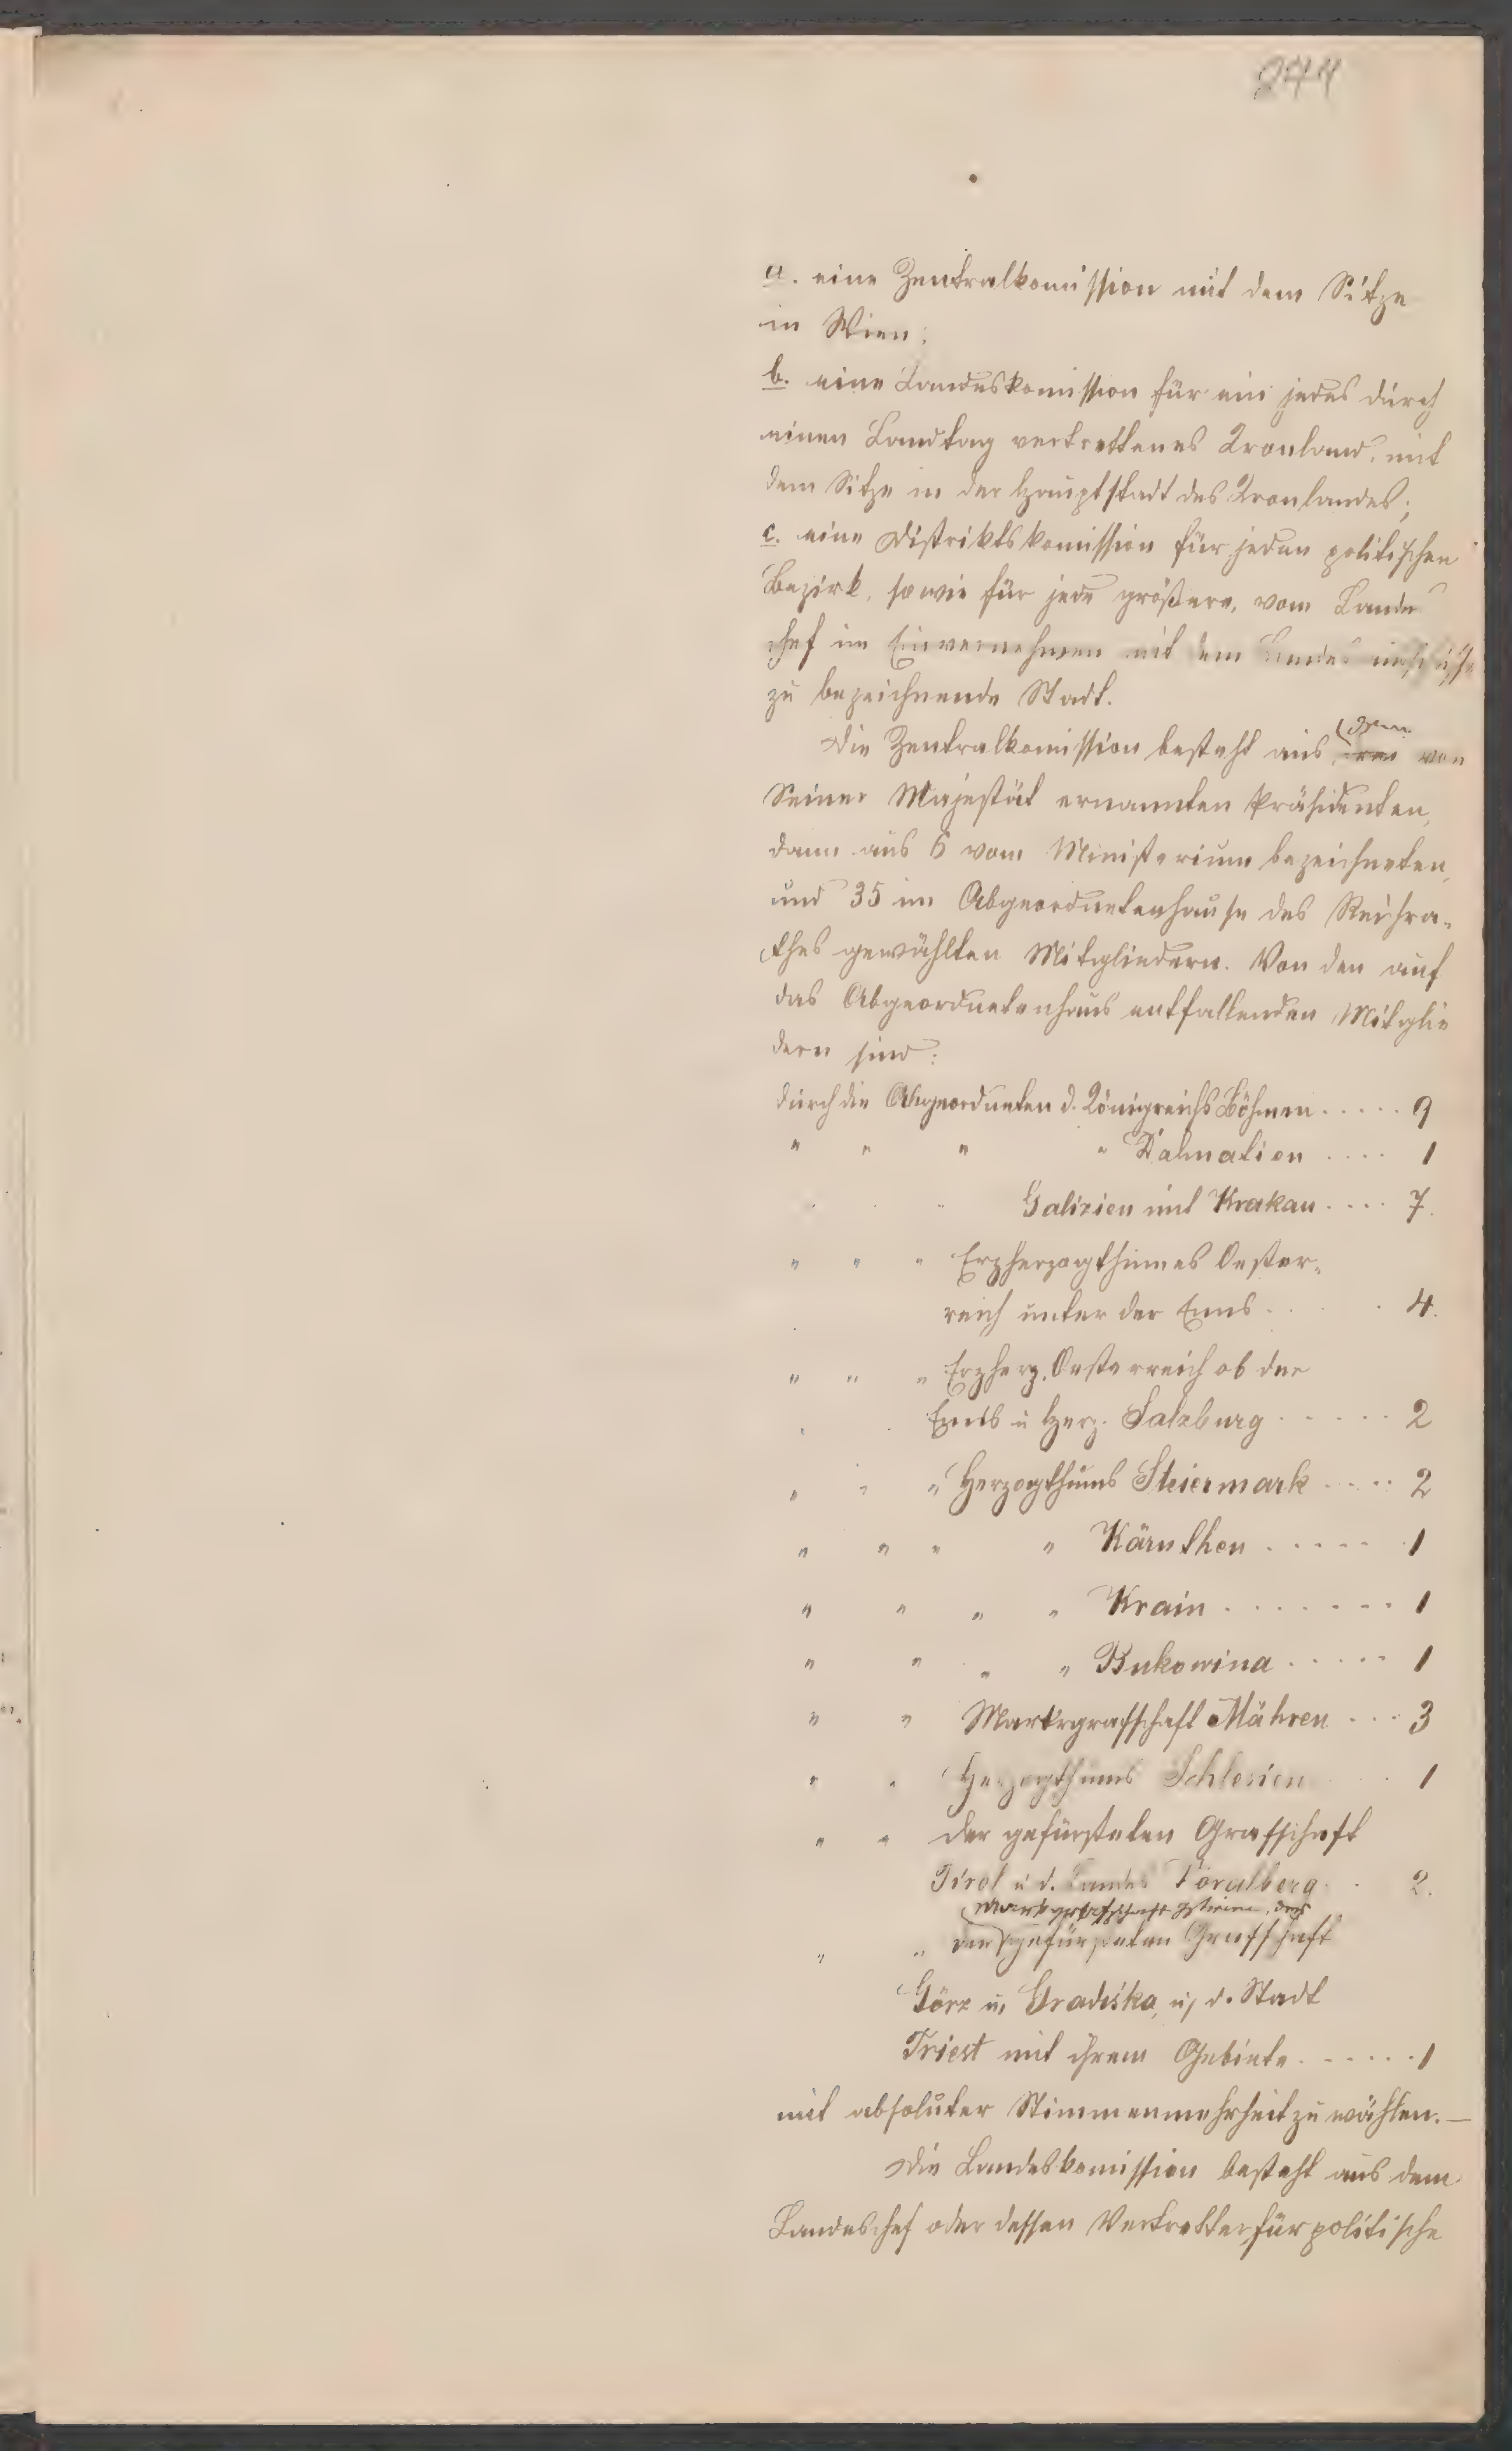 a. eine Zentralkomission mit dem Sitze
in Wien;
b. eine Landeskomission für ein jedes durch
einen Landtag vertrettenes Kronland, mit
dem Sitze in der Hauptstadt des Kronlandes;
c. eine Distriktskomission für jeden politischen
Bezirk, sowie für jede größere, vom Landes
chef im Einvernehmen mit dem Landesausschusse
zu bezeichnende Stadt.
dem
Die Zentralkomission besteht aus von
Seiner Majestät ernannten Präsidenten,
dann aus 6 vom Ministerium bezeichneten,
und 35 im Abgeordnetenhause des Reichsra-
thes gewählten Mitgliedern. Von den auf
das Abgeordnetenhaus entfallenden Mitglie
dern sind:
durch die Abgeordneten d. Königreichs Böhmen ..... 9
" " " " Dalmatien .... 1
Galizien mit Krakau .... 7.
" " " Erzherzogthumes Oester-
reich unter der Enns . . . 4.
" " " Erzherz. Oesterreich ob der
Enns u Herz. Salzburg ..... 2
" " " Herzogthums Steiermark .... 2
" " " " Kärnthen ..... 1
" " " " Krain ....... 1
" " " " Bukowina ..... 1
" " Markgrafschaft Mähren ... 3
" " Herzogthums Schlesien . 1
" " der gefürsteten Grafschaft
Tirol u d. Landes Voralberg . . 2.
Markgrafschaft Istrien, der
" " der gefürsteten Grafschaft
Görz u, Gradiska, u, d. Stadt
Triest mit ihrem Gebiete ...... 1
mit absoluter Stimmenmehrheit zu wählen. —
Die Landeskomission besteht aus dem
Landeschef oder dessen Vertretter für politische